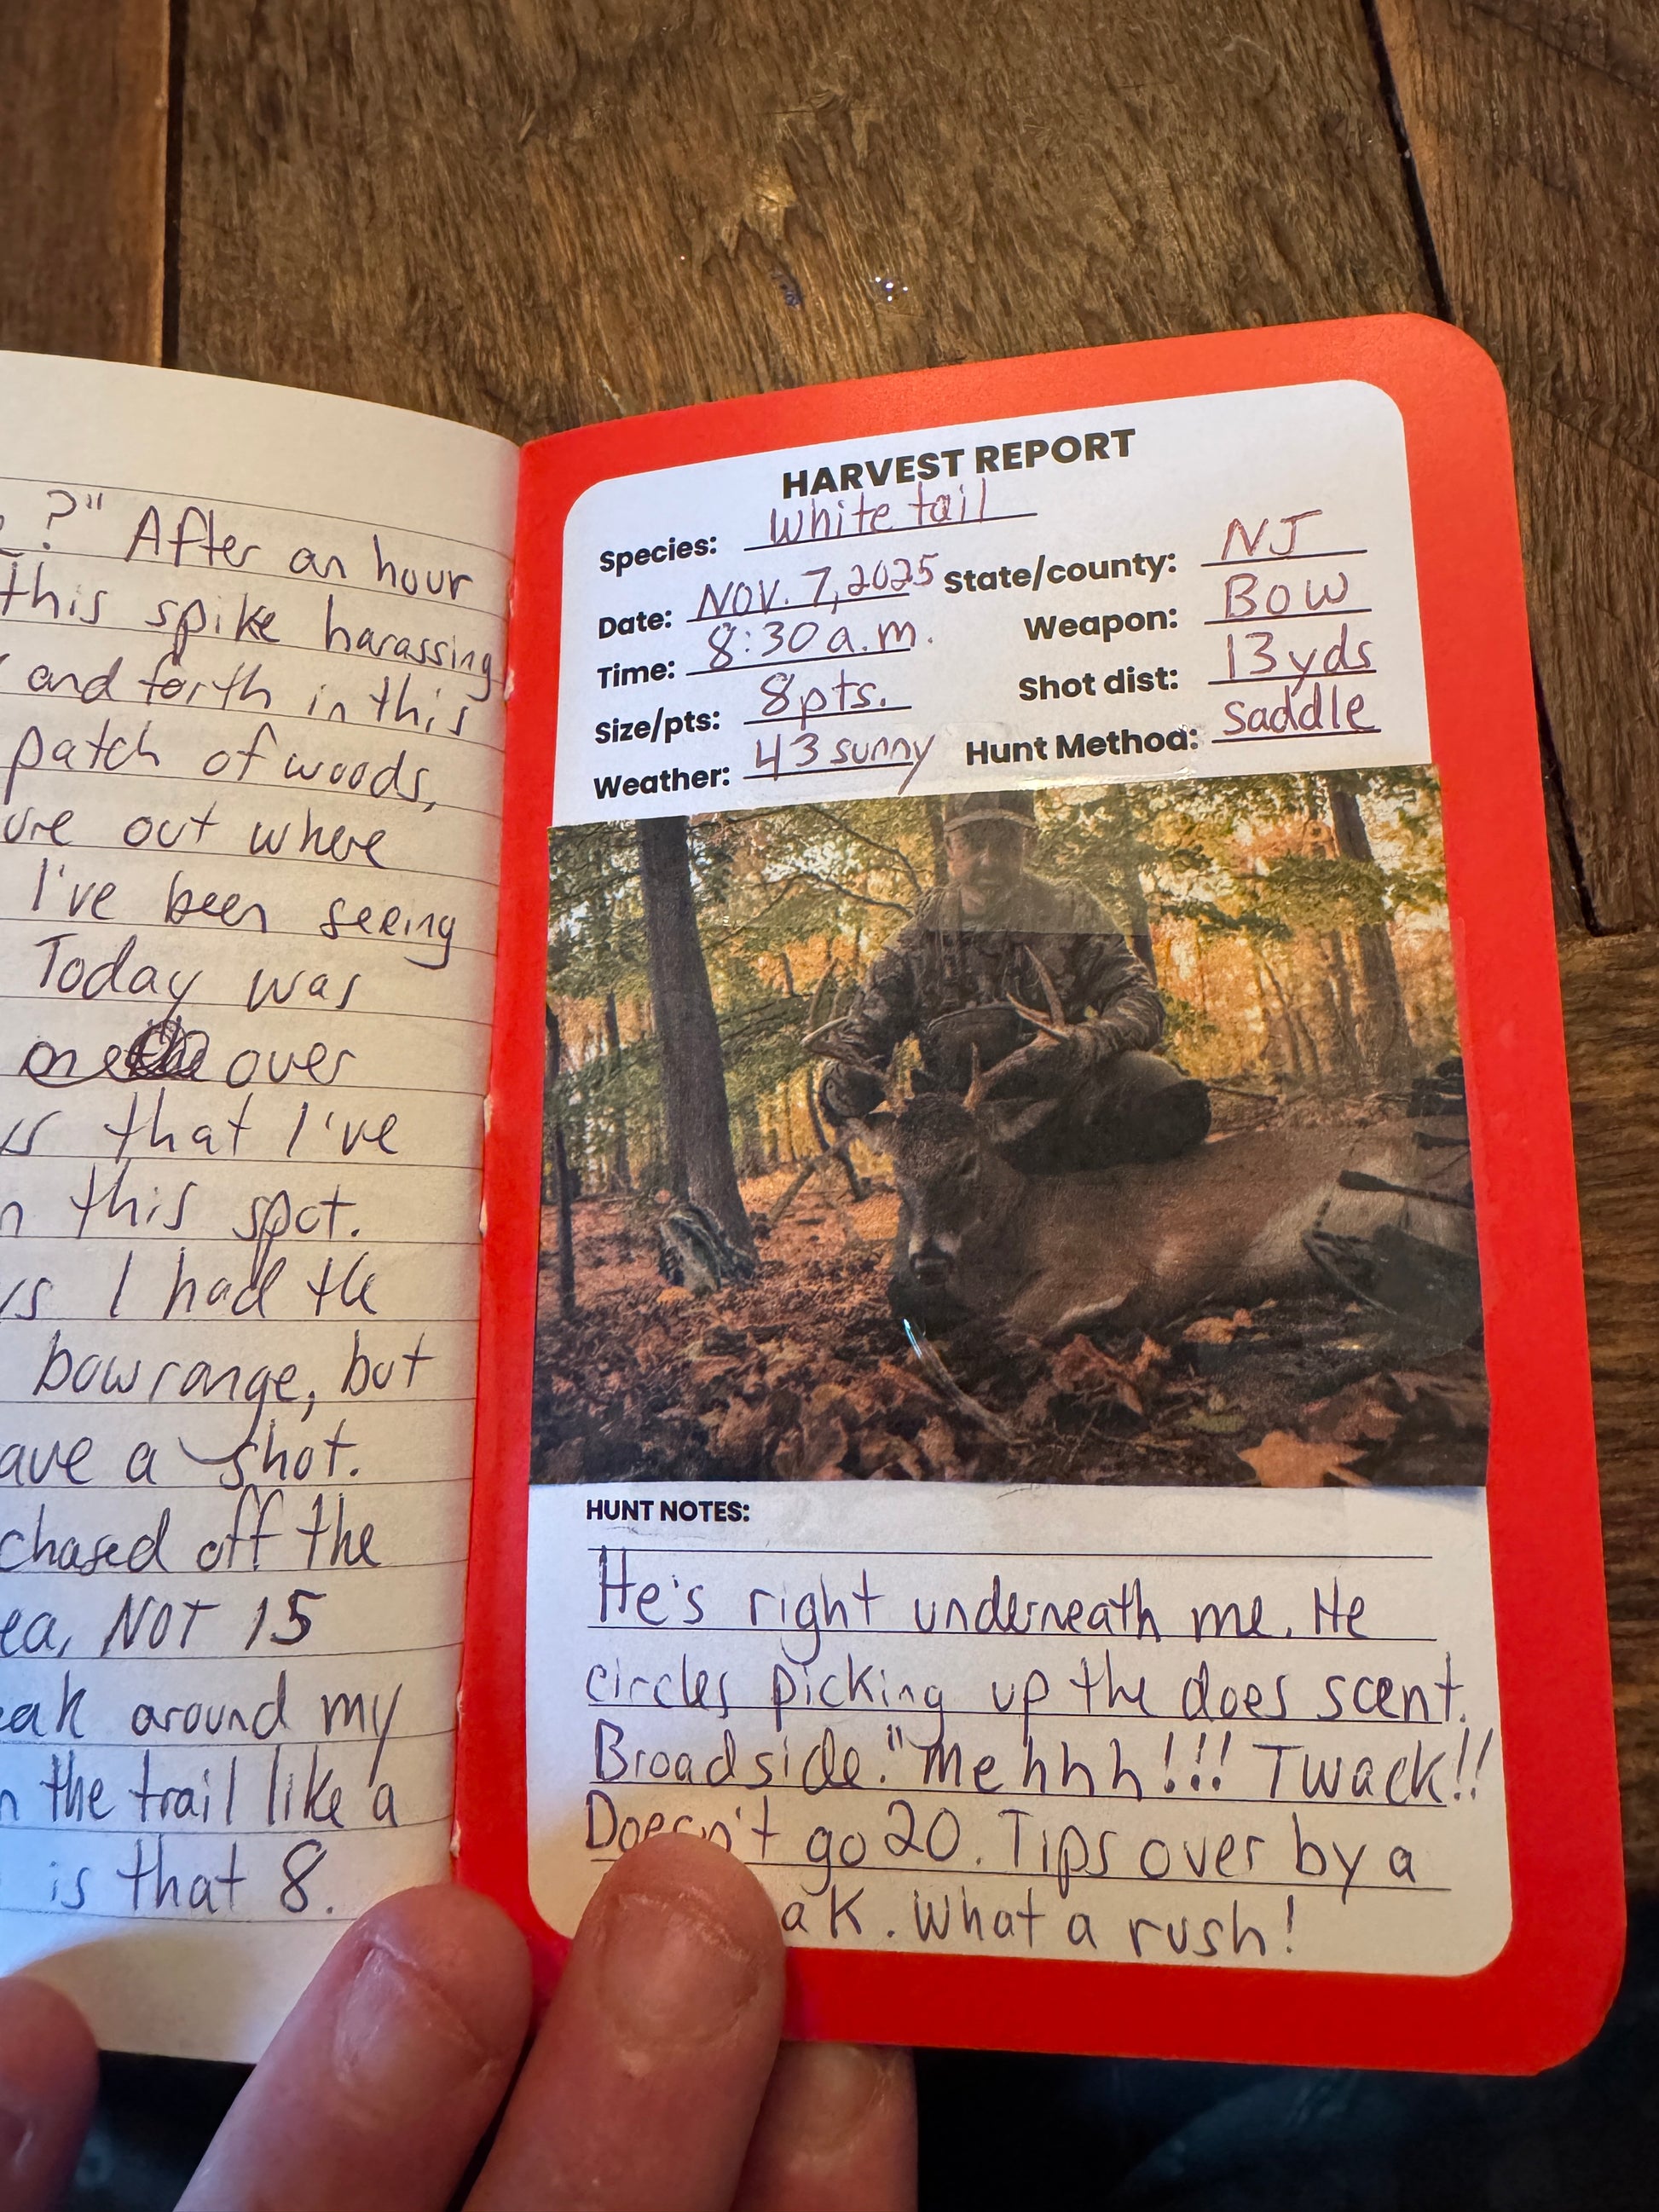 ?" After an hour
this spike harassing
and forth in this
patch of woods,
out where
I've been seeing
Today was
one over
that I've
this spot.
I had the
bow range, but
a shot.
chased off the
NOT 15
around my
the trail like a
is that 8.
HARVEST REPORT
Species: White tail
Date: NOV. 7, 2025 State/county: NJ
Time: 8:30 a.m. Weapon: Bow
Size/pts: 8pts. Shot dist: 13 yds
Weather: 43 sunny Hunt Method: saddle
HUNT NOTES:
He's right underneath me. He
circles picking up the does scent.
Broadside. "Mehhh!!! Twack!!
Doesn't go 20. Tips over by a
What a rush!